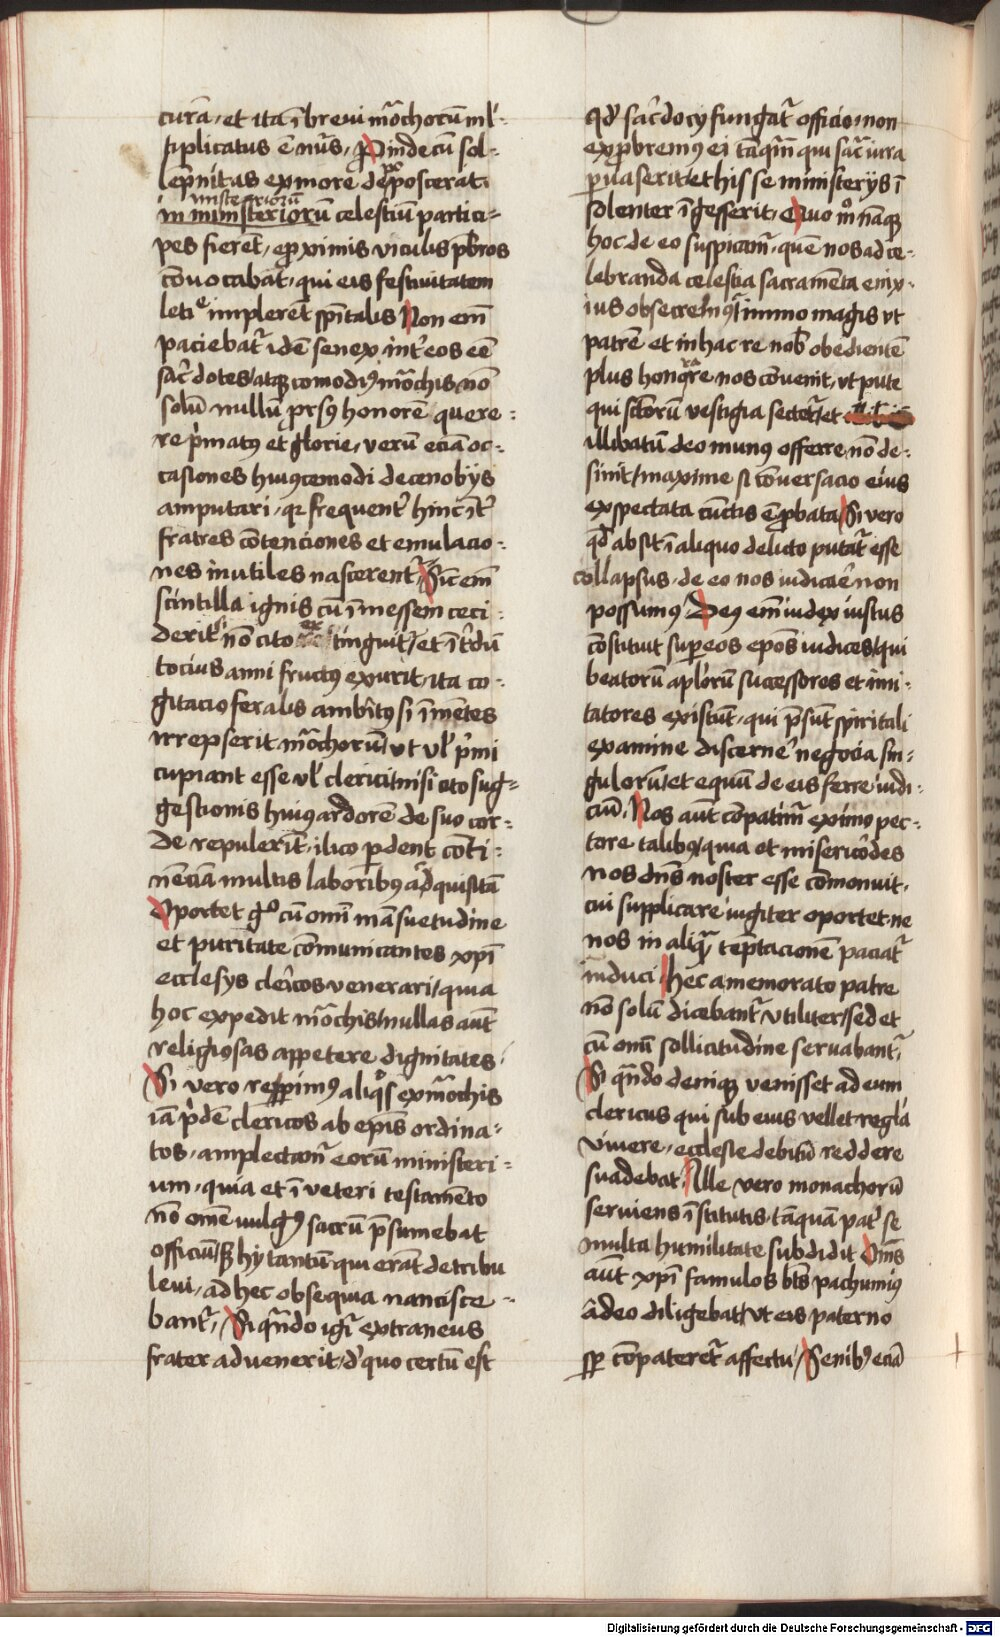 curā, et ita ī breui mōchorum ml'-
tiplicatus ē nūs, Proinde cū sol-
lēpnitas ex more deposcerat
misteriorū
in ministeriorū celestiū partici-
pes fierēt, e proximis viculis pb̄ros
cōuocabāt, qui eis festiuitatem
letie implerēt spūalis Non em̄
paciebat᷑ idē senex int᷑ eos eē
sac᷑dotes atq; comodiꝰ mōchis nō
solū nullū prsꝰ honorē quere-
re p᷑matꝰ et glorie, verū eciā oc-
casiones huiꝰcemodi de cenobijs
amputari, qꝛ frequent᷑ hinc īt᷑
fratres cōtenciones et emulacio-
nes inutiles nascerent᷑, Sic em̄
scintilla ignis cū ī messem ceci-
derit nō cito extinguit᷑ et īt᷑dū
tocius anni fructꝰ exurit, ita co-
gitacio feralis ambitꝰ si ī mētes
irrepserit mōchorū, vt vl' p᷑mi
cupiant esse vl' clerici, nisi cito sug-
gestionis huiꝰ ardorē de suo cor-
de repulerīt, ilico ꝑdent cōti-
nēciā multis laboribꝰ adquisitā
Oportet gͦ cū omī māsuetudine
et puritate cōmunicantes xp̄i
ecclesijs cler̄icos venerari, quia
hoc expedit mōchis, nullas aūt
religiosas appetere dignitates.
Si vero repperimꝰ aliqͦs ex mōchis
iā p᷑dē clericos ab ep̄is ordina-
tos, amplectam᷑ eorū ministeri-
um, quia et ī veteri testamēto
nō om̄e uulgꝰ sacrū p̄sumebat
officiū, sꝫ hy tantū qui erāt de tribu
leui, ad hec obsequia nancisce-
bant᷑, Si qn̄do igi᷑ extraneus
frater aduenerit, d᷑ quo certū est
qd᷑ sac᷑docij fungat᷑ officio, non
exprobremꝰ ei tāqm̄ qui sac᷑ iura
peruaserit, et his se ministerijs ī
solenter īgesserit, Quo mͦ nāq;
hoc de eo suspicam᷑, quē nos ad ce-
lebranda celestia sacramēta enix-
ius obsecrem̄ꝰ, immo magis vt
patrē et in hac re nob̄ obedientē
plus honorare nos cōuenit, vt pute
qui sc̄torū vestigia sectet᷑, et
illibatū deo munꝰ offerre nō de-
sinit, maxime si cōuersacio eius
exspectata cūctis ē ꝓbata, Si vero
qd᷑ absit ī aliquo delicto putat᷑ esse
collapsus, de eo nos iudicare non
possumꝰ, Deꝰ em̄ iudex iustus
cōstituit suꝑ eos ep̄os iudices, qui
beatorū apl'orū successores et imi-
tatores existūt, qui p̄sūt spiritali
examine discerne᷑ negocia sin-
gulorū, et equū de eis ferre iudi-
ciū, Nos aūt cōpatim᷑ ex imo pec-
tore talibꝰ, quia et misericōdes
nos dn̄s noster esse cōmonuit,
cui supplicare iugiter oportet, ne
nos in aliqͣ tēptacionē paciat᷑
induci, Hec a memorato patre
nō solū dicebant᷑ vtiliter, sed et
cū omī sollicitudine seruabant᷑,
Si qn̄do deniq; venisset ad eum
clericus qui sub eius vellet reg᷑la
viuere, ecclesie debitū reddere
suadebat, Ille vero monachorū
seruiens īstitutis, tāquā pat᷑ se
multa humilitate subdidit Om̄s
aūt xp̄i famulos bt̄s pachumiꝰ
adeo diligebat, vt eis paterno
sꝑ cōpateret᷑ affectu, Senibꝰ eciā
Digitalisierung gefördert durch die Deutsche Forschungsgemeinschaft - DFG